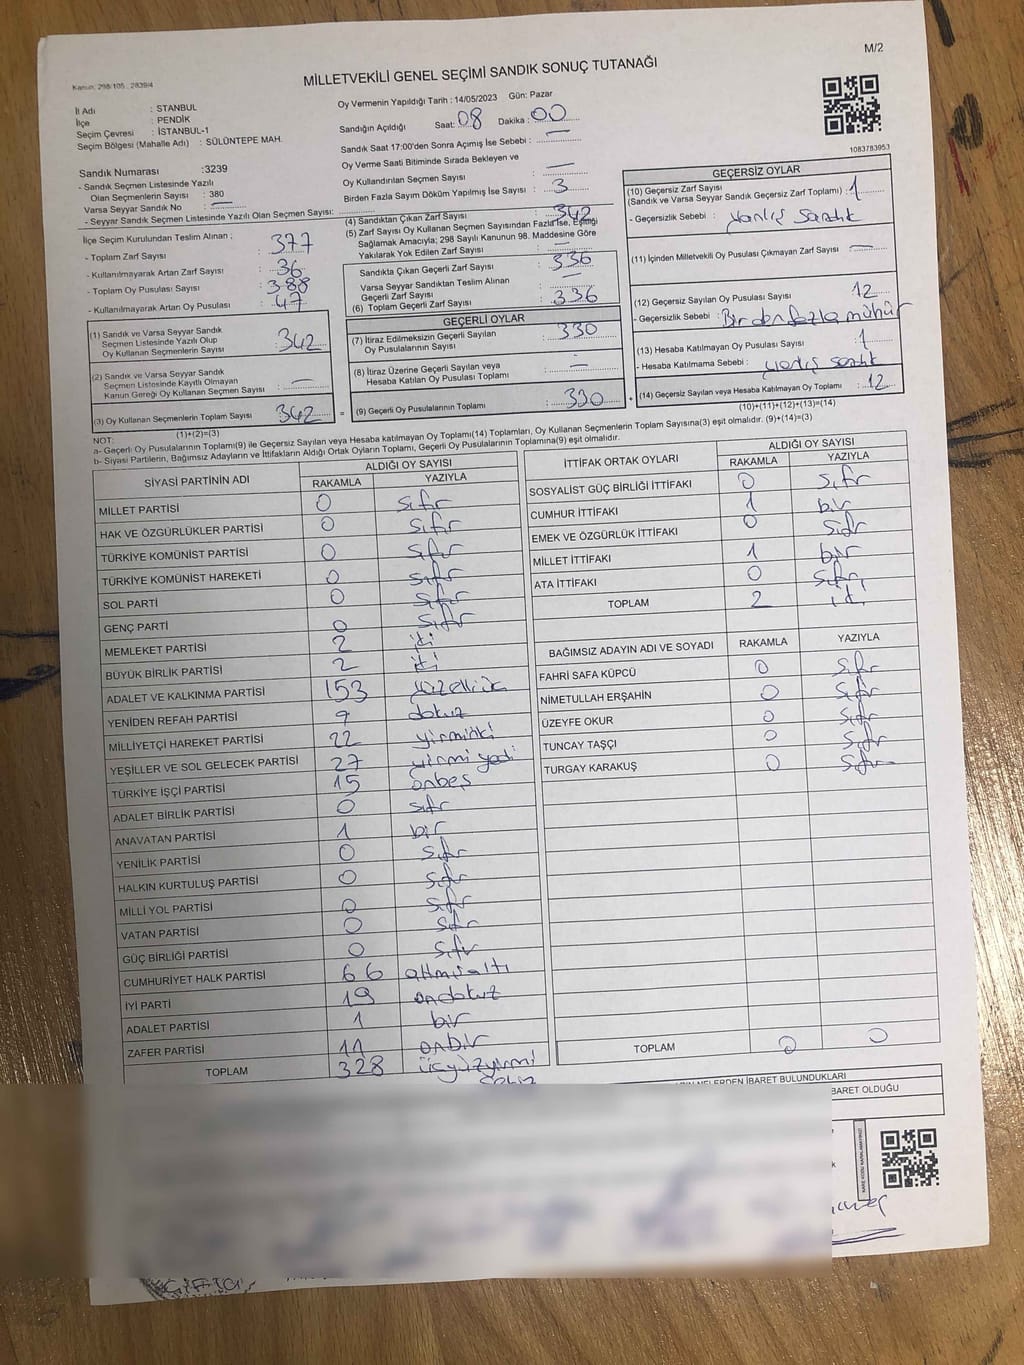 M/2
Kanun: 298/105, 2839/4
MİLLETVEKİLİ GENEL SEÇİMİ SANDIK SONUÇ TUTANAĞI
İl Adı : STANBUL
İlçe : PENDİK
Seçim Çevresi : İSTANBUL-1
Seçim Bölgesi (Mahalle Adı) : SÜLÜNTEPE MAH.
Oy Vermenin Yapıldığı Tarih : 14/05/2023 Gün: Pazar
Sandığın Açıldığı Saat: 08 Dakika: 00
Sandık Saat 17:00'den Sonra Açımış İse Sebebi : —
Oy Verme Saati Bitiminde Sırada Bekleyen ve
Oy Kullandırılan Seçmen Sayısı : —
Birden Fazla Sayım Döküm Yapılmış İse Sayısı : 3
1083783953
Sandık Numarası :3239
- Sandık Seçmen Listesinde Yazılı
Olan Seçmenlerin Sayısı : 380
Varsa Seyyar Sandık No : —
- Seyyar Sandık Seçmen Listesinde Yazılı Olan Seçmen Sayısı:
İlçe Seçim Kurulundan Teslim Alınan ;
- Toplam Zarf Sayısı : 377
- Kullanılmayarak Artan Zarf Sayısı : 36
- Toplam Oy Pusulası Sayısı : 388
- Kullanılmayarak Artan Oy Pusulası : 47
(1) Sandık ve Varsa Seyyar Sandık
Seçmen Listesinde Yazılı Olup
Oy Kullanan Seçmenlerin Sayısı : 342
(2) Sandık ve Varsa Seyyar Sandık
Seçmen Listesinde Kayıtlı Olmayan
Kanun Gereği Oy Kullanan Seçmen Sayısı : —
(3) Oy Kullanan Seçmenlerin Toplam Sayısı : 342
(1)+(2)=(3)
(4) Sandıktan Çıkan Zarf Sayısı : 342
(5) Zarf Sayısı Oy Kullanan Seçmen Sayısından Fazla İse, Eşitliği
Sağlamak Amacıyla; 298 Sayılı Kanunun 98. Maddesine Göre
Yakılarak Yok Edilen Zarf Sayısı : —
Sandıkta Çıkan Geçerli Zarf Sayısı : 336
Varsa Seyyar Sandıktan Teslim Alınan
Geçerli Zarf Sayısı : —
(6) Toplam Geçerli Zarf Sayısı : 336
GEÇERLİ OYLAR
(7) İtiraz Edilmeksizin Geçerli Sayılan
Oy Pusulalarının Sayısı : 330
(8) İtiraz Üzerine Geçerli Sayılan veya
Hesaba Katılan Oy Pusulası Toplamı : —
= (9) Geçerli Oy Pusulalarının Toplamı : 330 +
GEÇERSİZ OYLAR
(10) Geçersiz Zarf Sayısı
(Sandık ve Varsa Seyyar Sandık Geçersiz Zarf Toplamı) : 1
- Geçersizlik Sebebi : yanlış sandık
(11) İçinden Milletvekili Oy Pusulası Çıkmayan Zarf Sayısı : —
(12) Geçersiz Sayılan Oy Pusulası Sayısı : 12
- Geçersizlik Sebebi : Birden fazla mühür
(13) Hesaba Katılmayan Oy Pusulası Sayısı : 1
- Hesaba Katılmama Sebebi : yanlış sandık
(14) Geçersiz Sayılan veya Hesaba Katılmayan Oy Toplamı : 12
(10)+(11)+(12)+(13)=(14)
NOT:
a- Geçerli Oy Pusulalarının Toplamı(9) ile Geçersiz Sayılan veya Hesaba katılmayan Oy Toplamı(14) Toplamları, Oy Kullanan Seçmenlerin Toplam Sayısına(3) eşit olmalıdır. (9)+(14)=(3)
b- Siyasi Partilerin, Bağımsız Adayların ve İttifakların Aldığı Ortak Oyların Toplamı, Geçerli Oy Pusulalarının Toplamına(9) eşit olmalıdır.
SİYASİ PARTİNİN ADI ALDIĞI OY SAYISI
RAKAMLA YAZIYLA
MİLLET PARTİSİ 0 sıfır
HAK VE ÖZGÜRLÜKLER PARTİSİ 0 sıfır
TÜRKİYE KOMÜNİST PARTİSİ 0 sıfır
TÜRKİYE KOMÜNİST HAREKETİ 0 sıfır
SOL PARTİ 0 sıfır
GENÇ PARTİ 0 sıfır
MEMLEKET PARTİSİ 2 iki
BÜYÜK BİRLİK PARTİSİ 2 iki
ADALET VE KALKINMA PARTİSİ 153
YENİDEN REFAH PARTİSİ 9 dokuz
MİLLİYETÇİ HAREKET PARTİSİ 22 yirmiiki
YEŞİLLER VE SOL GELECEK PARTİSİ 27 yirmi yedi
TÜRKİYE İŞÇİ PARTİSİ 15 onbeş
ADALET BİRLİK PARTİSİ 0 sıfır
ANAVATAN PARTİSİ 1 bir
YENİLİK PARTİSİ 0 sıfır
HALKIN KURTULUŞ PARTİSİ 0 sıfır
MİLLİ YOL PARTİSİ 0 sıfır
VATAN PARTİSİ 0 sıfır
GÜÇ BİRLİĞİ PARTİSİ 0 sıfır
CUMHURİYET HALK PARTİSİ 66 altmışaltı
İYİ PARTİ 19 ondokuz
ADALET PARTİSİ 1 bir
ZAFER PARTİSİ 11 onbir
TOPLAM 328 üçyüzyirmi
sekiz
İTTİFAK ORTAK OYLARI ALDIĞI OY SAYISI
RAKAMLA YAZIYLA
SOSYALİST GÜÇ BİRLİĞİ İTTİFAKI 0 sıfır
CUMHUR İTTİFAKI 1 bir
EMEK VE ÖZGÜRLÜK İTTİFAKI 0 sıfır
MİLLET İTTİFAKI 1 bir
ATA İTTİFAKI 0 sıfır
TOPLAM 2 iki
BAĞIMSIZ ADAYIN ADI VE SOYADI RAKAMLA YAZIYLA
FAHRİ SAFA KÜPCÜ 0 sıfır
NİMETULLAH ERŞAHİN 0 sıfır
ÜZEYFE OKUR 0 sıfır
TUNCAY TAŞÇI 0 sıfır
TURGAY KARAKUŞ 0 sıfır
TOPLAM 0 0
NELERDEN İBARET BULUNDUKLARI
BARET OLDUĞU